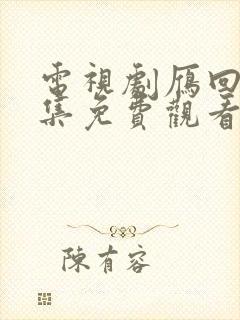 電視劇鴈回
集免費觀看
陳有容